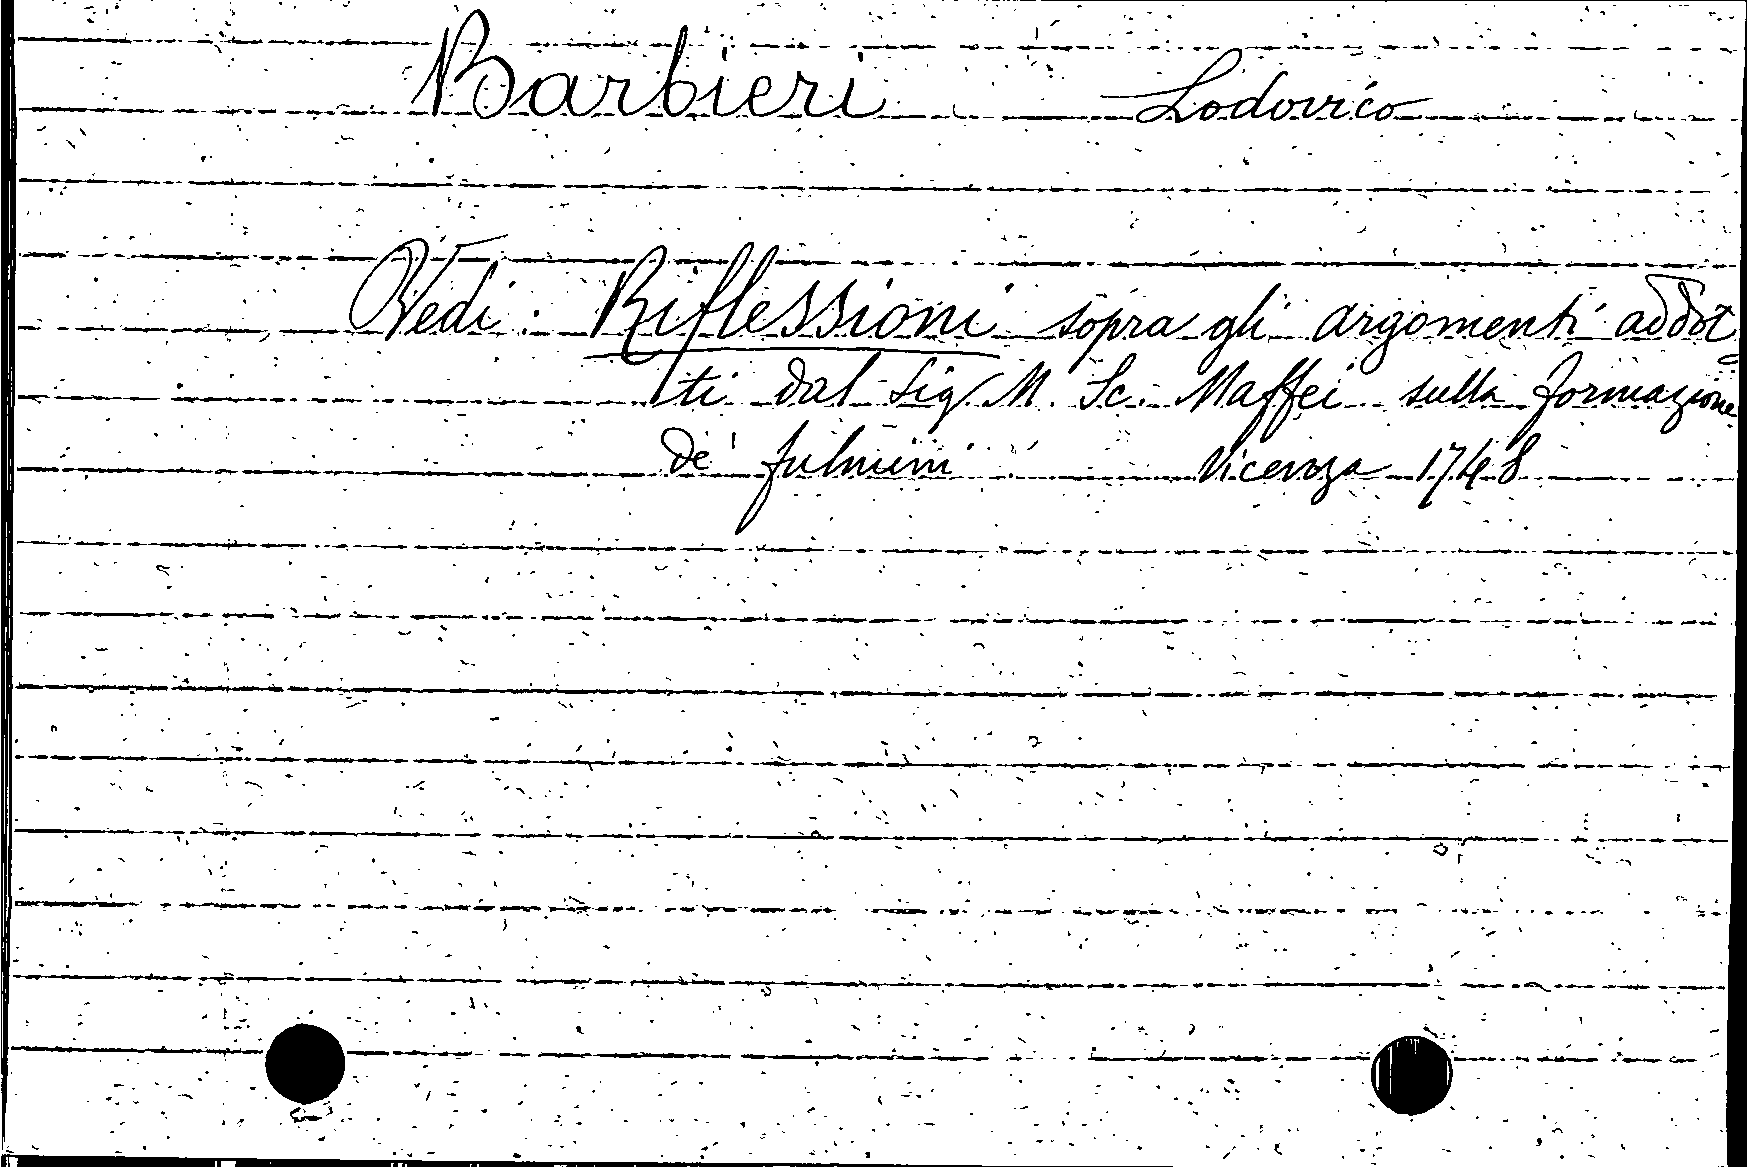 Barbieri Lodovico
Vedi: Riflessioni sopra gli argomenti addot
ti dal Sig. M. Sc. Maffei sulla formazione
de' fulmini Vicenza 1748